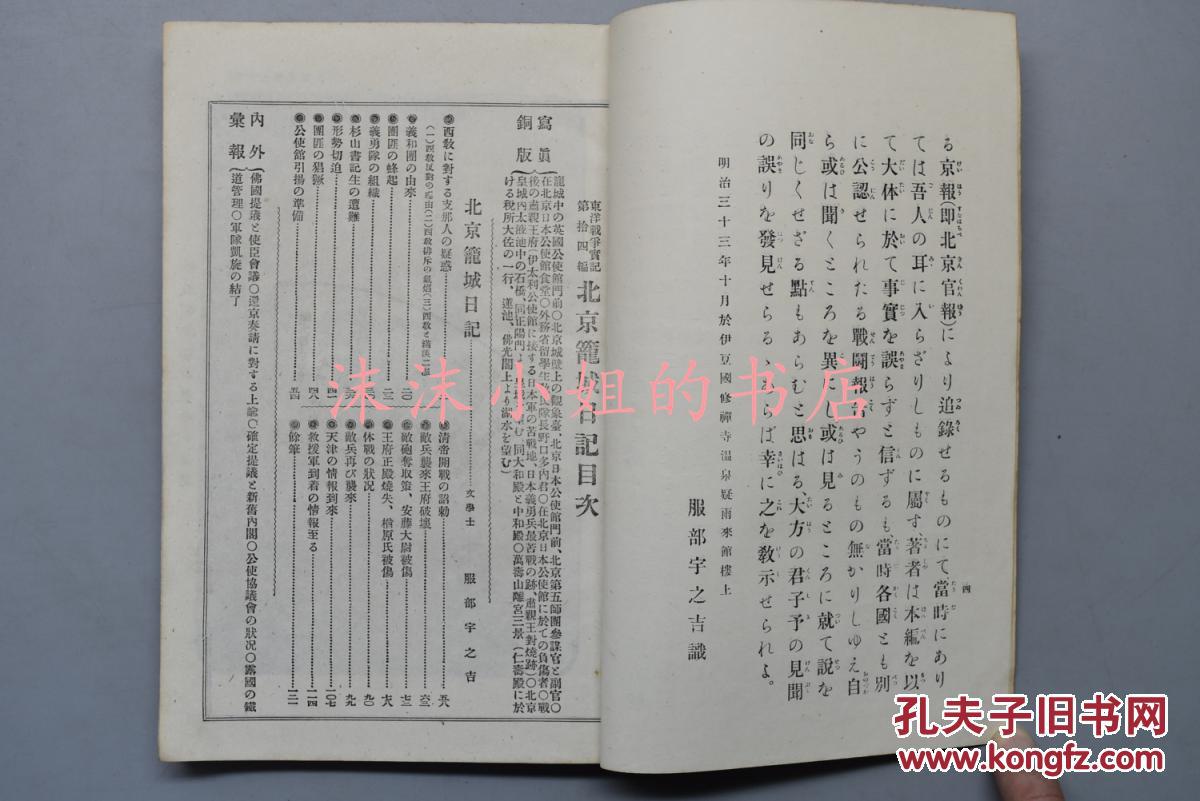 る京報(即北京官報)により追錄せるものにて當時にあり
ては吾人の耳に入らざりしものに屬す著者は本編を以
て大体に於て事實を誤らずと信ずるも、當時各國とも別
に公認せられたる戰鬪報告やうのもの無かりしゆえ自
ら或は聞くところを異にし或は見るところに就て說を
同じくせざる點もあらむと思はる、大方の君子予の見聞
の誤りを發見せらるゝあらば幸に之を敎示せられよ。
明治三十三年十月於伊豆國修禪寺溫泉疑雨來館樓上
服部宇之吉識
四
東洋戰爭實記
第拾四編
北京籠城日記目次
寫眞
銅版
籠城中の英國公使館門前○北京城壁上の觀象臺、北京日本公使館門前、北京第五師團參謀官と副官○
在北京日本公使館食堂○外務省留學生義勇隊長野口多內君○在北京日本公使館に於ての負傷者○戰
後の肅親王府(伊太利公使館に接する日本軍の苦戰地、日本義勇兵最苦戰の跡、肅親王對燒跡)○北京
皇城內太液池中の石橋、同正陽門より皇城を望む、同大和殿と中和殿○萬壽山離宮三景(仁壽殿に於
ける稅所大佐の一行、蓮池、佛光閣上より湖水を望む)
北京籠城日記
文學士 服部宇之吉
西敎に對する支那人の疑惑
義和團の由來 二〇
團匪の蜂起 二三
義勇隊の組織 三〇
杉山書記生の遭難 三六
形勢切迫 四一
團匪の猖獗 四八
公使館引揚の準備 五四
淸帝開戰の詔勅 五八
敵兵襲來王府破壞 六三
敵砲奪取策、安藤大尉被傷 七三
王府正殿燒失、楢原氏被傷 七八
休戰の狀況 九〇
敵兵再び襲來 九九
天津の情報到來 一〇七
救援軍到着の情報至る 一一四
餘筆 一二一
內外
彙報
佛國提議と使臣會議○還京奏請に對する上諭○確定提議と新舊內閣○公使協議會の狀況○露國の鐵
道管理○軍隊凱旋の結了
沫沫小姐的书店
孔夫子旧书网
www.kongfz.com